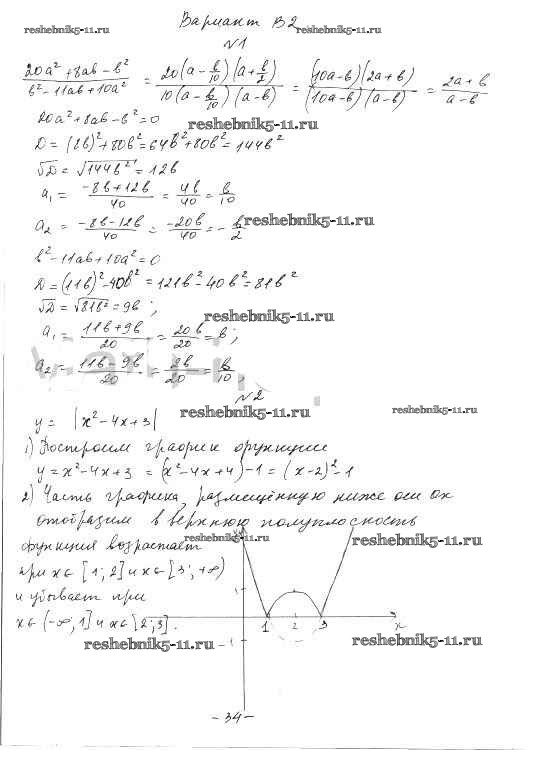 Вариант В2
reshebnik5-11.ru reshebnik5-11.ru
№1
(20a² + 8ab - b²)/(b² - 11ab + 10a²) = (20(a - b/10)(a + b/2))/(10(a - b/10)(a - b)) = ((10a - b)(2a + b))/((10a - b)(a - b)) = (2a + b)/(a - b)
20a² + 8ab - b² = 0
reshebnik5-11.ru
D = (8b)² + 80b² = 64b² + 80b² = 144b²
√D = √144b² = 12b
a₁ = (-8b + 12b)/40 = 4b/40 = b/10
a₂ = (-8b - 12b)/40 = -20b/40 = -b/2
reshebnik5-11.ru
b² - 11ab + 10a² = 0
D = (11b)² - 40b² = 121b² - 40b² = 81b²
√D = √81b² = 9b;
reshebnik5-11.ru
a₁ = (11b + 9b)/20 = 20b/20 = b;
a₂ = (11b - 9b)/20 = 2b/20 = b/10;
№2
reshebnik5-11.ru reshebnik5-11.ru
y = |x² - 4x + 3|
1) Построим график функции
y = x² - 4x + 3 = (x² - 4x + 4) - 1 = (x - 2)² - 1
2) Часть графика, размещённую ниже оси ох
отобразим в верхнюю полуплоскость
функция возрастает
reshebnik5-11.ru reshebnik5-11.ru
при x ∈ [1; 2] и x ∈ [3; +∞)
и убывает при
reshebnik5-11.ru
x ∈ (-∞; 1] и x ∈ [2; 3].
1 2 3 x
reshebnik5-11.ru reshebnik5-11.ru
- 34 -